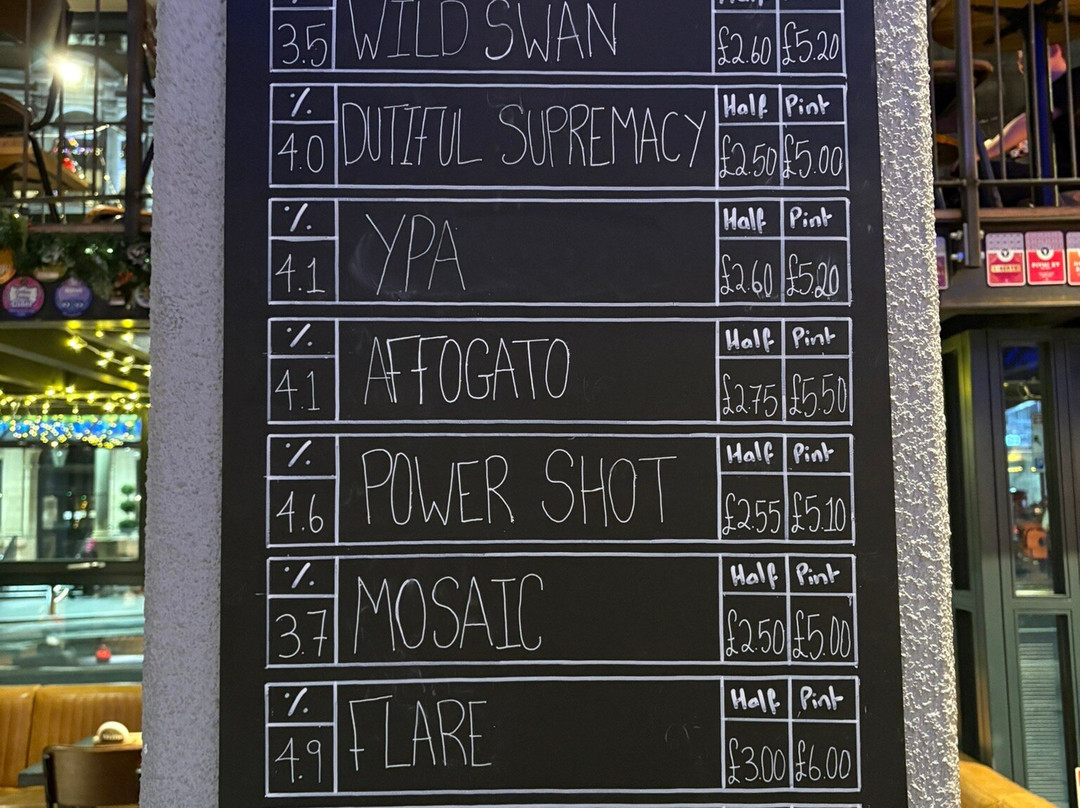 % Half Pint
3.5 WILD SWAN £2.60 £5.20
% Half Pint
4.0 DUTIFUL SUPREMACY £2.50 £5.00
% Half Pint
4.1 YPA £2.60 £5.20
% Half Pint
4.1 AFFOGATO £2.75 £5.50
% Half Pint
4.6 POWER SHOT £2.55 £5.10
% Half Pint
3.7 MOSAIC £2.50 £5.00
% Half Pint
4.9 FLARE £3.00 £6.00